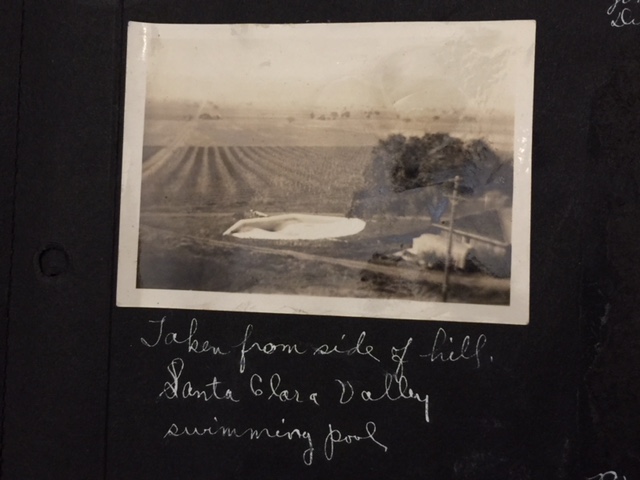 Taken from side of hill.
Santa Clara Valley
swimming pool